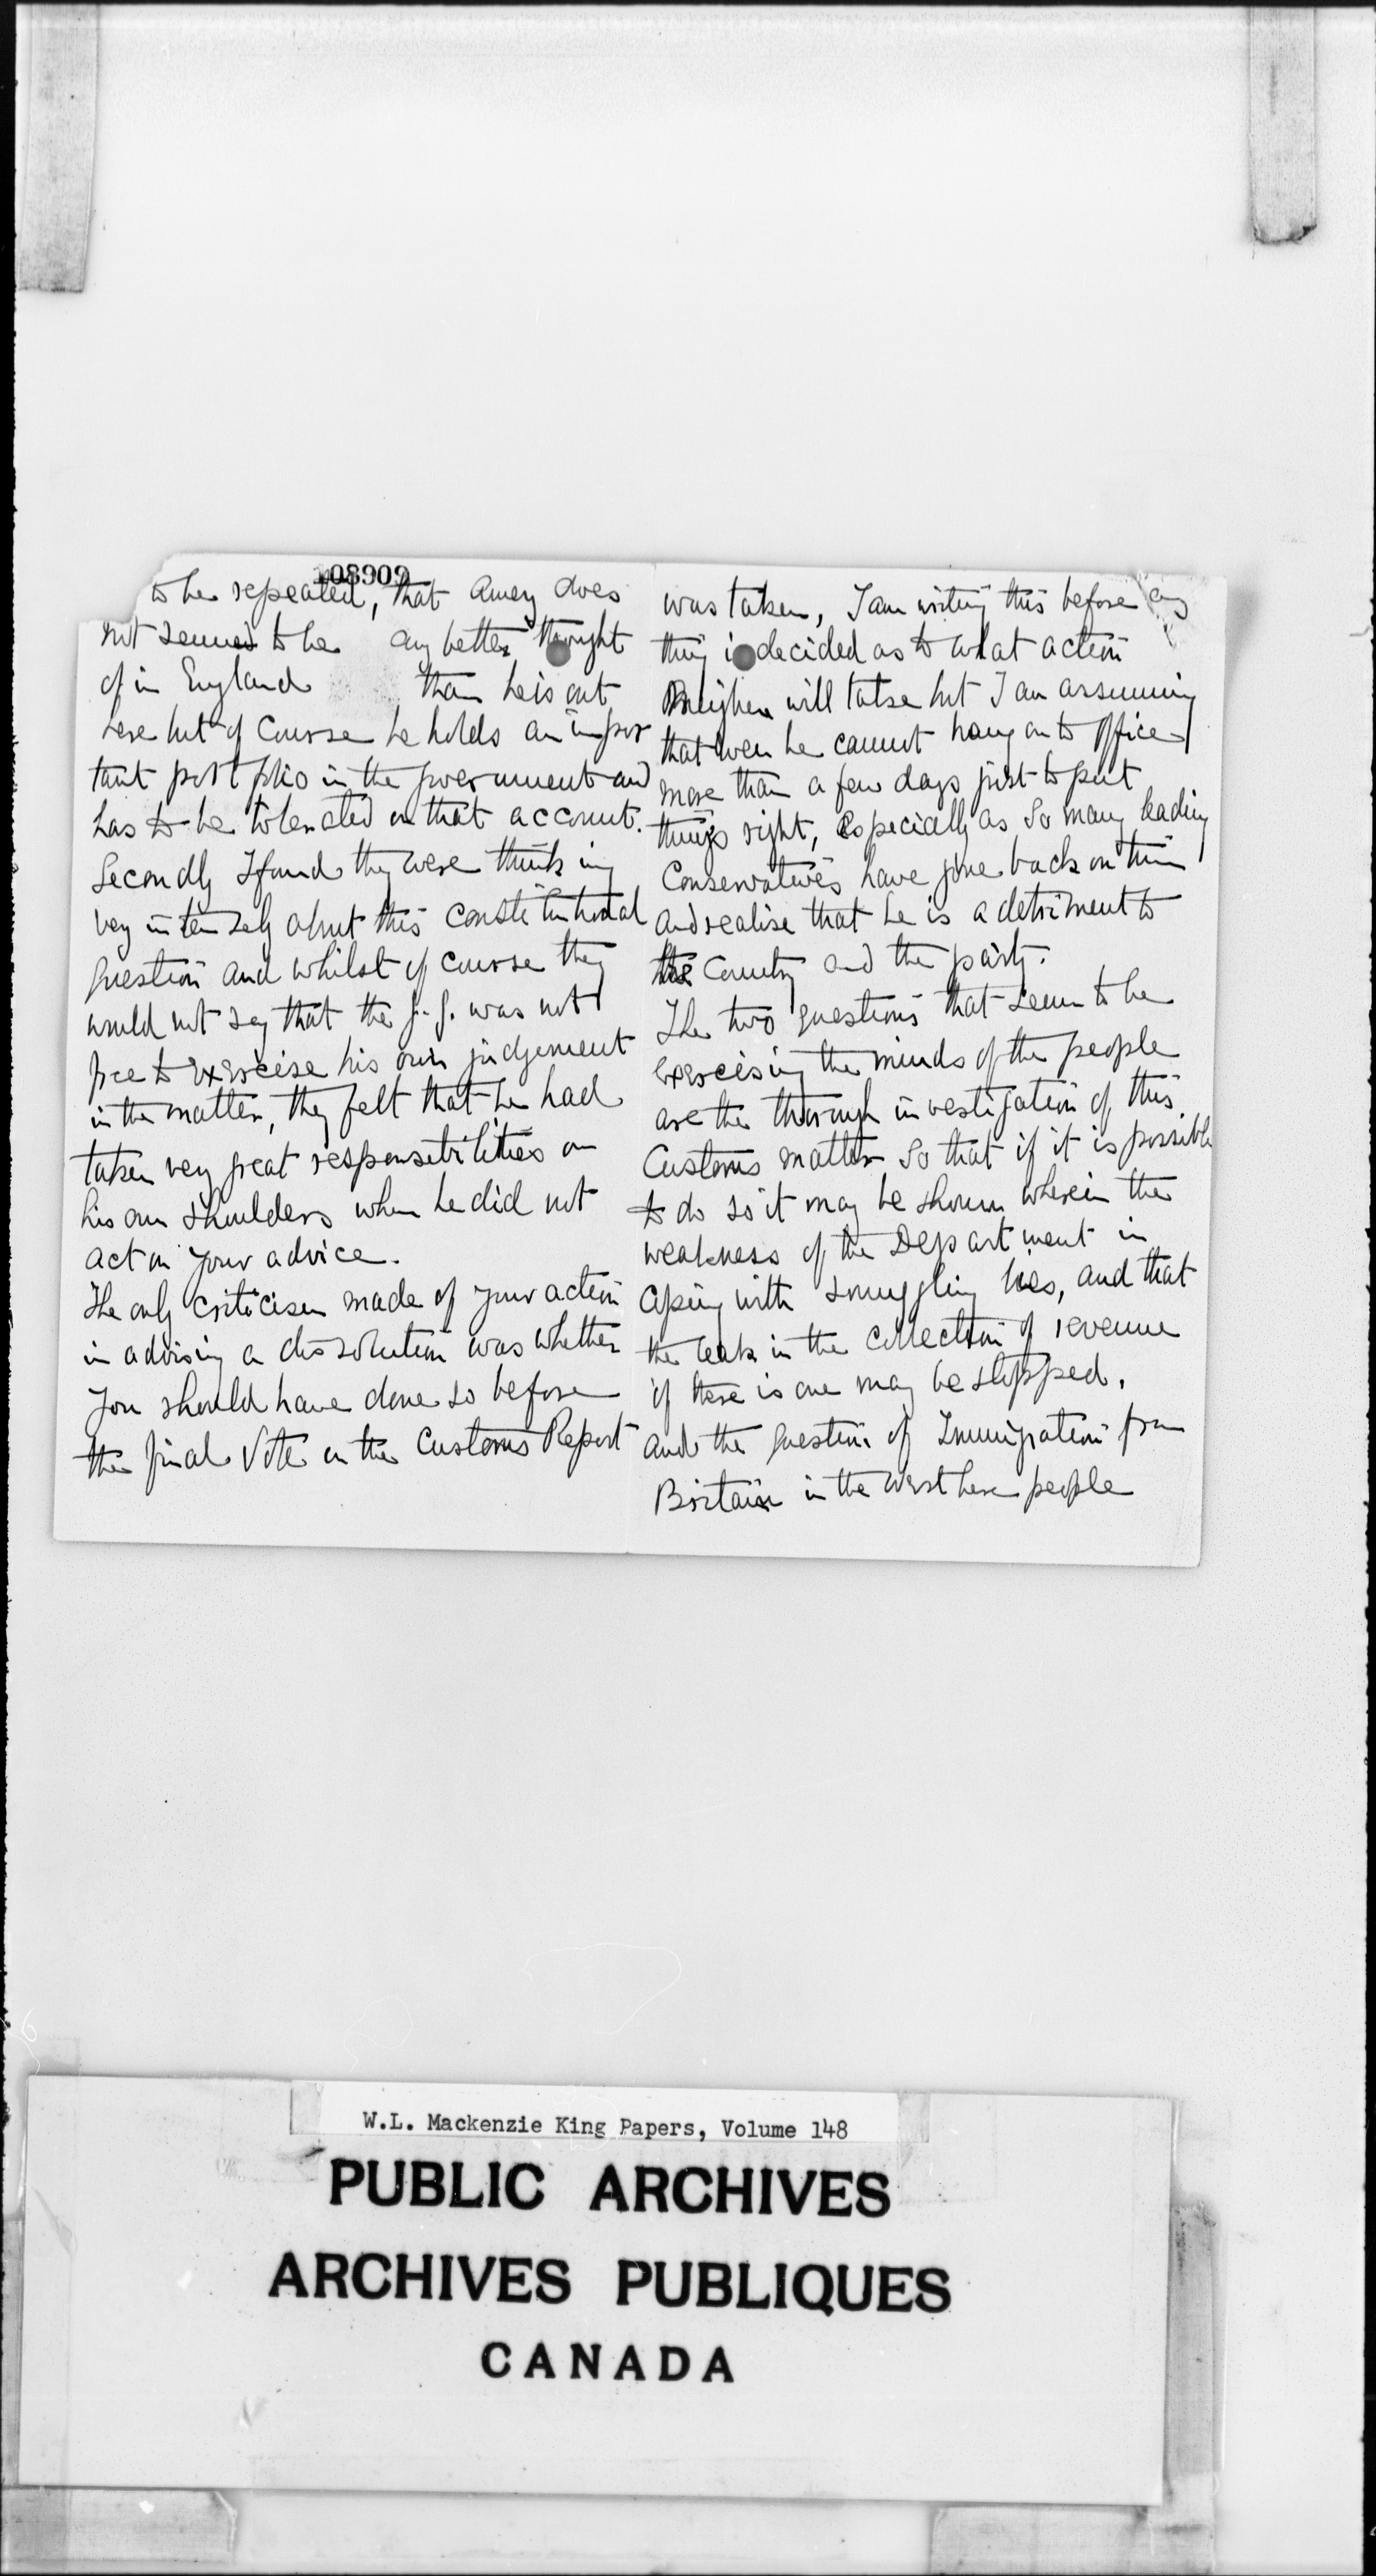 108909
to be repeated, that Amery does
not seemed to be any better thought
of in England than he is out
here but of course he holds an impor
tant portfolio in the government and
has to be tolerated on that account.
Secondly I found they were thinking
very intensely about this constitutional
question and whilst of course they
would not say that the G.G. was not
free to exercise his own judgement
in the matter, they felt that he had
taken very great responsibilities on
his own shoulders when he did not
act on your advice.
The only criticism made of your action
in advising a dissolution was whether
you should have done so before
the final Vote on the Customs Report
was taken, I am writing this before any
thing is decided as to what action
Meighen will take but I am assuming
that even he cannot hang on to office
more than a few days just to put
things right, especially as so many leading
Conservatives have gone back on him
and realise that he is a detriment to
the Country and the party.
The two questions that seem to be
exercising the minds of the people
are the thorough investigation of this
Customs matter so that if it is possible
to do so it may be shown wherein the
weakness of the Department in
coping with smuggling lies, and that
the leak in the collection of revenue
if there is one may be stopped,
and the question of Immigration from
Britain in the West here people
W.L. Mackenzie King Papers, Volume 148
PUBLIC ARCHIVES
ARCHIVES PUBLIQUES
CANADA